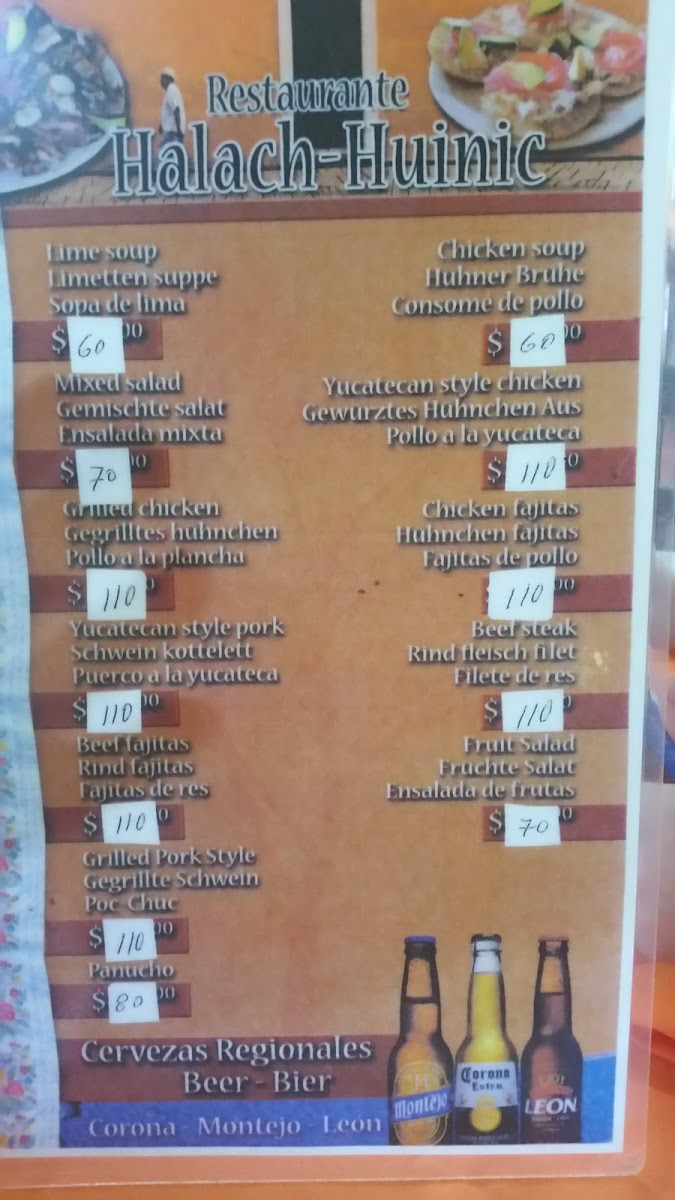 Restaurante
Halach-Huinic
Lime soup
Limetten suppe
Sopa de lima
$ 60 00
Mixed salad
Gemischte salat
Ensalada mixta
$ 70 00
Grilled chicken
Gegrilltes huhnchen
Pollo a la plancha
$ 110 0
Yucatecan style pork
Schwein kottelett
Puerco a la yucateca
$ 110 00
Beef fajitas
Rind fajitas
Fajitas de res
$ 110 0
Grilled Pork Style
Gegrillte Schwein
Poc-Chuc
$ 110 00
Panucho
$ 80 00
Chicken soup
Huhner Bruhe
Consomé de pollo
$ 60 0
Yucatecan style chicken
Gewurztes Huhnchen Aus
Pollo a la yucateca
$ 110 0
Chicken fajitas
Huhnchen fajitas
Fajitas de pollo
$ 110 00
Beef steak
Rind fleisch filet
Filete de res
$ 110 0
Fruit Salad
Fruchte Salat
Ensalada de frutas
$ 70 0
Cervezas Regionales
Beer - Bier
Corona - Montejo - León
Montejo
Corona
Extra
LEON